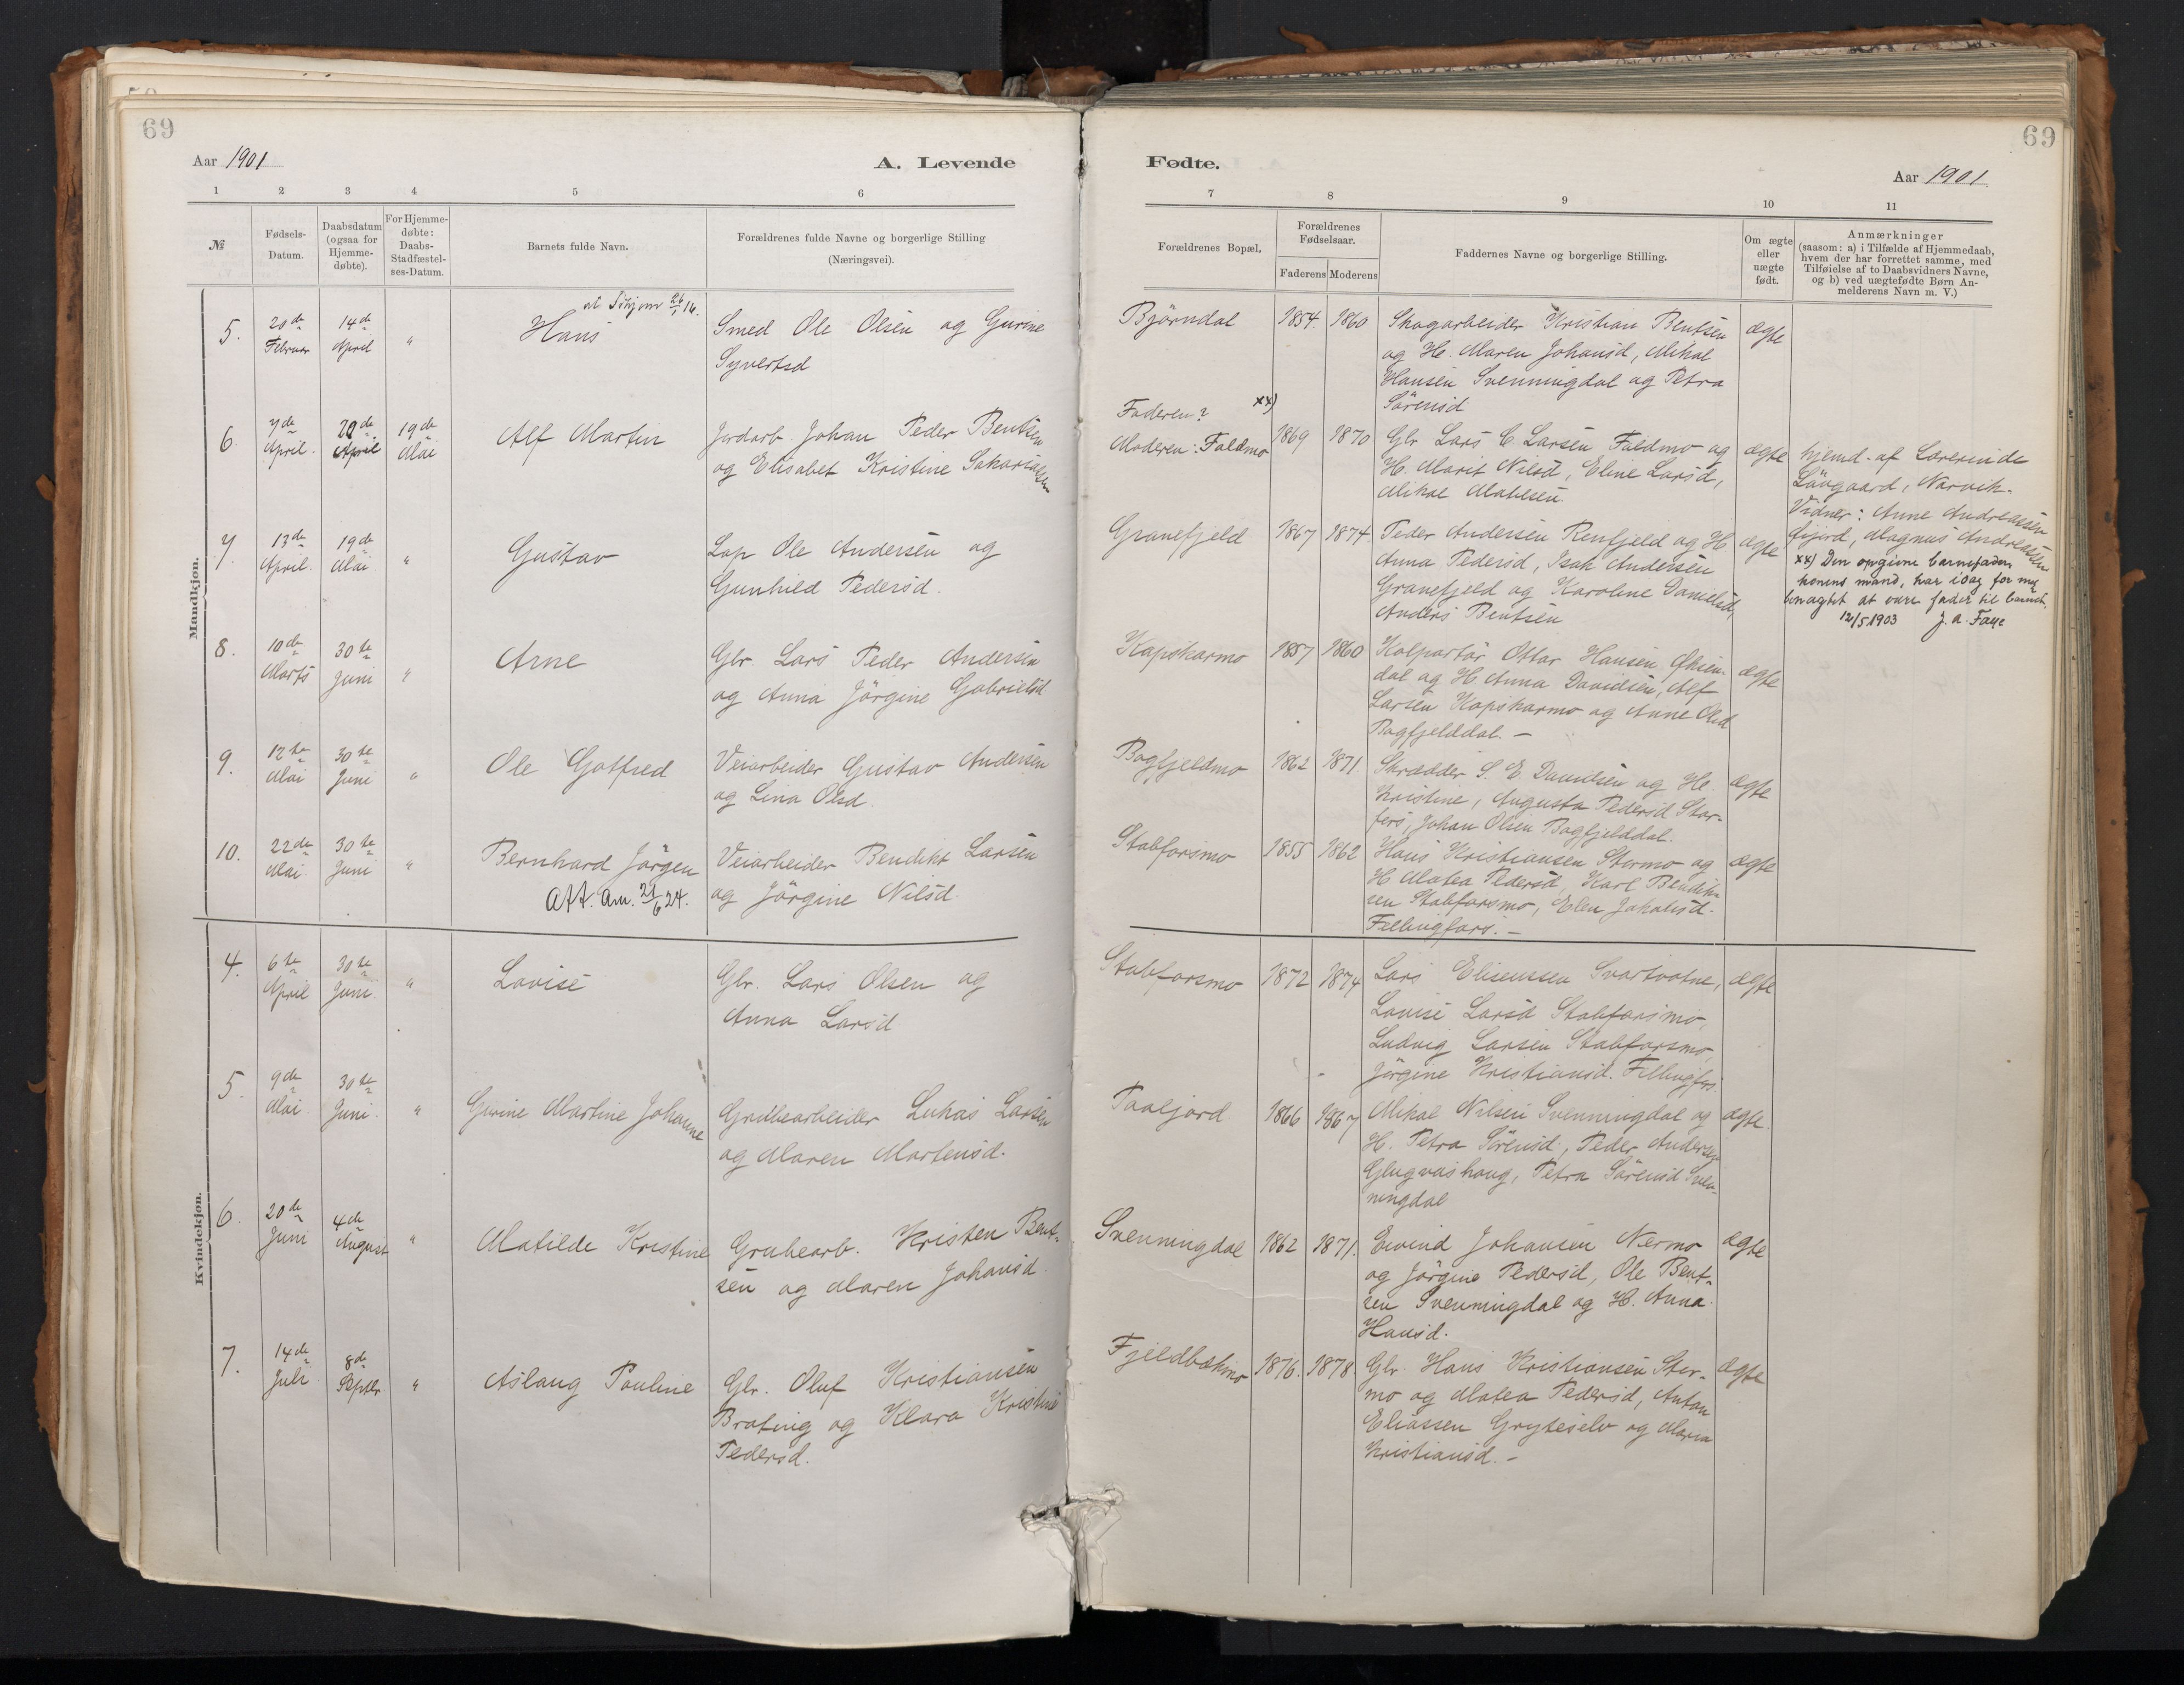 69
Aar 1901
A. Levende
1 2 3 4 5 6
№
Fødsels-
Datum.
Daabsdatum
(ogsaa for
Hjemme-
døbte).
For Hjemme-
døbte:
Daabs-
Stadfæstel-
ses-Datum.
Barnets fulde Navn.
Forældrenes fulde Navne og borgerlige Stilling
(Næringsvei).
Mandkjøn.
5. 20de Februar 14de April " Hans
Smed Ole Olsen og Gurine
Syvertsd
6 7de April. 20de April 19de Mai Alf Martin
Jordarb. Johan Peder Bentsen
og Elisabet Kristine Sakariassen
7. 13de April. 19de Mai " Gustav
Lap Ole Andersen og
Gunhild Pedersd.
8. 10de Marts 30te Juni " Arne
Gbr. Lars Peder Andersen
og Anna Jörgine Gabrielsd
9. 12te Mai 30te Juni " Ole Gotfred
Veiarbeider Gustav Andersen
og Lina Olsd.
10. 22de Mai 30te Juni " Bernhard Jörgen
Att. am. 21/6 24.
Veiarbeider Bendikt Larsen
og Jörgine Nilsd.
Kvindekjøn.
4. 6te April 30te Juni " Lovise
Gbr. Lars Olsen og
Anna Larsd
5. 9de Mai 30te Juni. " Gurine Martine Johanne
Grubearbeider Lukas Larsen
og Maren Martensd.
6. 20de Juni 4de August " Matilde Kristine
Grubearb. Kristen Bent-
sen og Maren Johansd
7. 14de Juli 8de Septbr " Aslaug Pauline
Gbr. Oluf Kristiansen
Brating og Klara Kristine
Pedersd.
69
Fødte.
Aar 1901
7 8 9 10 11
Forældrenes Bopæl.
Forældrenes
Fødselsaar.
Faderens Moderens
Faddernes Navne og borgerlige Stilling.
Om ægte
eller
uægte
født.
Anmærkninger
(saasom: a) i Tilfælde af Hjemmedaab,
hvem der har forrettet samme, med
Tilføielse af to Daabsvidners Navne,
og b) ved uægtefødte Børn An-
melderens Navn m. V.)
Björndal 1854. 1860
Skogarbeider Kristian Bentsen
og H. Maren Johansd, Mikal
Hansen Svenningdal og Petra
Sörensd
ægte
Faderen? xx)
Moderen: Faldmo 1869 1870
Gbr Lars C Larsen Faldmo og
H. Marit Nilsd, Eline Larsd,
Mikal Matlisen
ægte
hjemd. af Lærerinde
Lövgaard, Narvik.
Vidner: Anne Andreassen
Öijord, Magnus Andreassen
xx) Den opgivne barnefader,
konens mand, har idag for mig
benægtet at være fader til barnet.
12/5 1903 J. A. Faye
Granefjeld 1867 1874.
Peder Andersen Renfjeld og H
Anna Pedersd, Isak Andersen
Granefjeld og Karoline Danielsd,
Anders Bentsen
ægte
Kapskarmo 1857 1860
Kolportör Ottar Hansen Öksen-
dal og H. Anna Davidsen, Alf
Larsen Kapskarmo og Anne Olsd
Bagfjelddal. -
ægte
Bagfjeldmo 1862 1871.
Skrædder S. E Davidsen og H.
Kristine, Augusta Pedersd Stor-
fors, Johan Olsen Bagfjelddal.
ægte
Stabforsmo 1855 1862
Hans Kristiansen Stormo og
H Matea Pedersd, Karl Bendik-
sen Stabforsmo, Elen Jakobsd.
Fellingfors. -
ægte
Stabforsmo 1872 1874
Lars Eliseussen Svartvatne,
Lovise Larsd Stabforsmo,
Ludvig Larsen Stabforsmo,
Jörgine Kristiansd. Fellingfors
ægte
Taaljord 1866 1867
Mikal Nilsen Svenningdal og
H. Petra Sörensd, Peder Andersen
Glugvashaug, Petra Sörensd Sven-
ningdal
ægte.
Svenningdal 1862 1871.
Eivind Johansen Nermo
og Jörgine Pedersd, Ole Bent-
sen Svenningdal og H. Anna
Hansd.
ægte
Fjeldbækmo 1876. 1878.
Gbr. Hans Kristiansen Stor-
mo og Matea Pedersd, Anton
Eliassen Gryteselv og Maren
Kristiansd. -
ægte